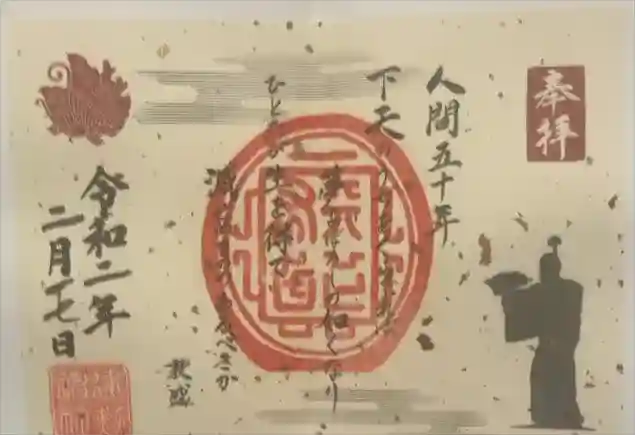 奉拝
人間五十年
下天のうちをくらぶれば
夢まぼろしの如くなり
ひとたび生を得て
滅せぬもののあるべきか
敦盛
令和二年
二月十七日